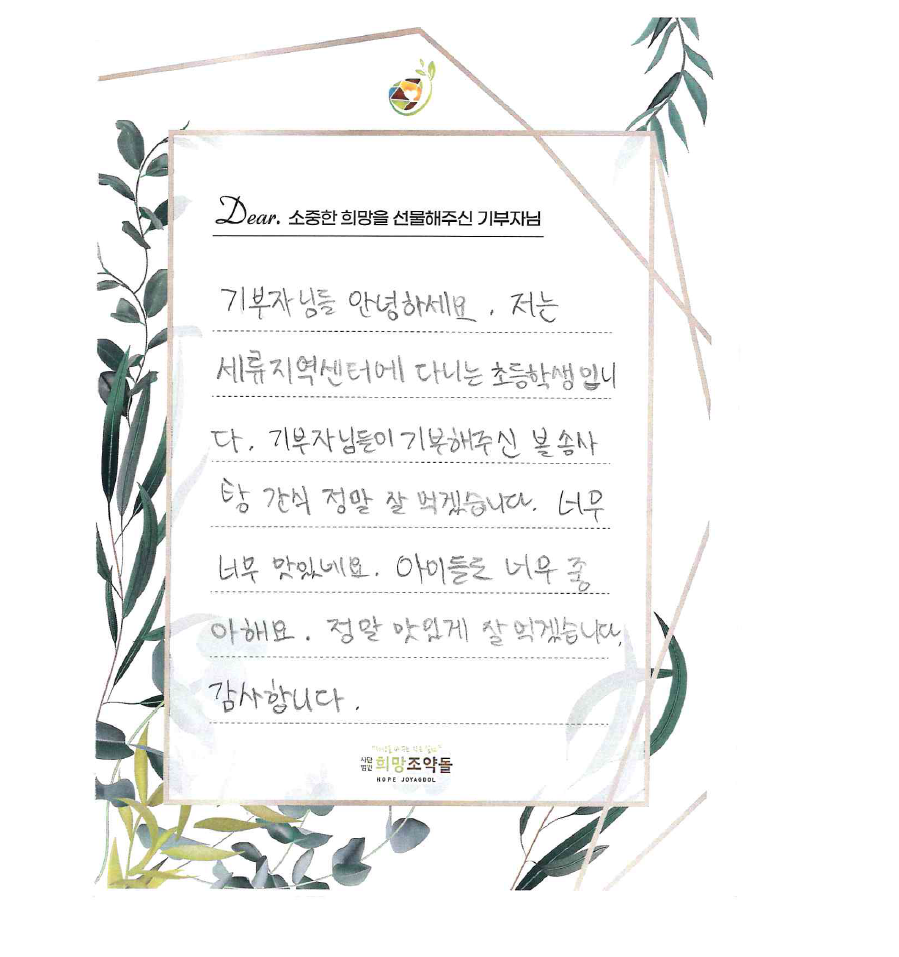 Dear. 소중한 희망을 선물해주신 기부자님
기부자님들 안녕하세요. 저는
세류지역센터에 다니는 초등학생입니
다. 기부자님들이 기부해주신 볼송사
탕 간식 정말 잘 먹겠습니다. 너무
너무 맛있네요. 아이들도 너무 좋
아해요. 정말 맛있게 잘 먹겠습니다.
감사합니다.
사단
법인 희망조약돌
HOPE JOYAGDOL